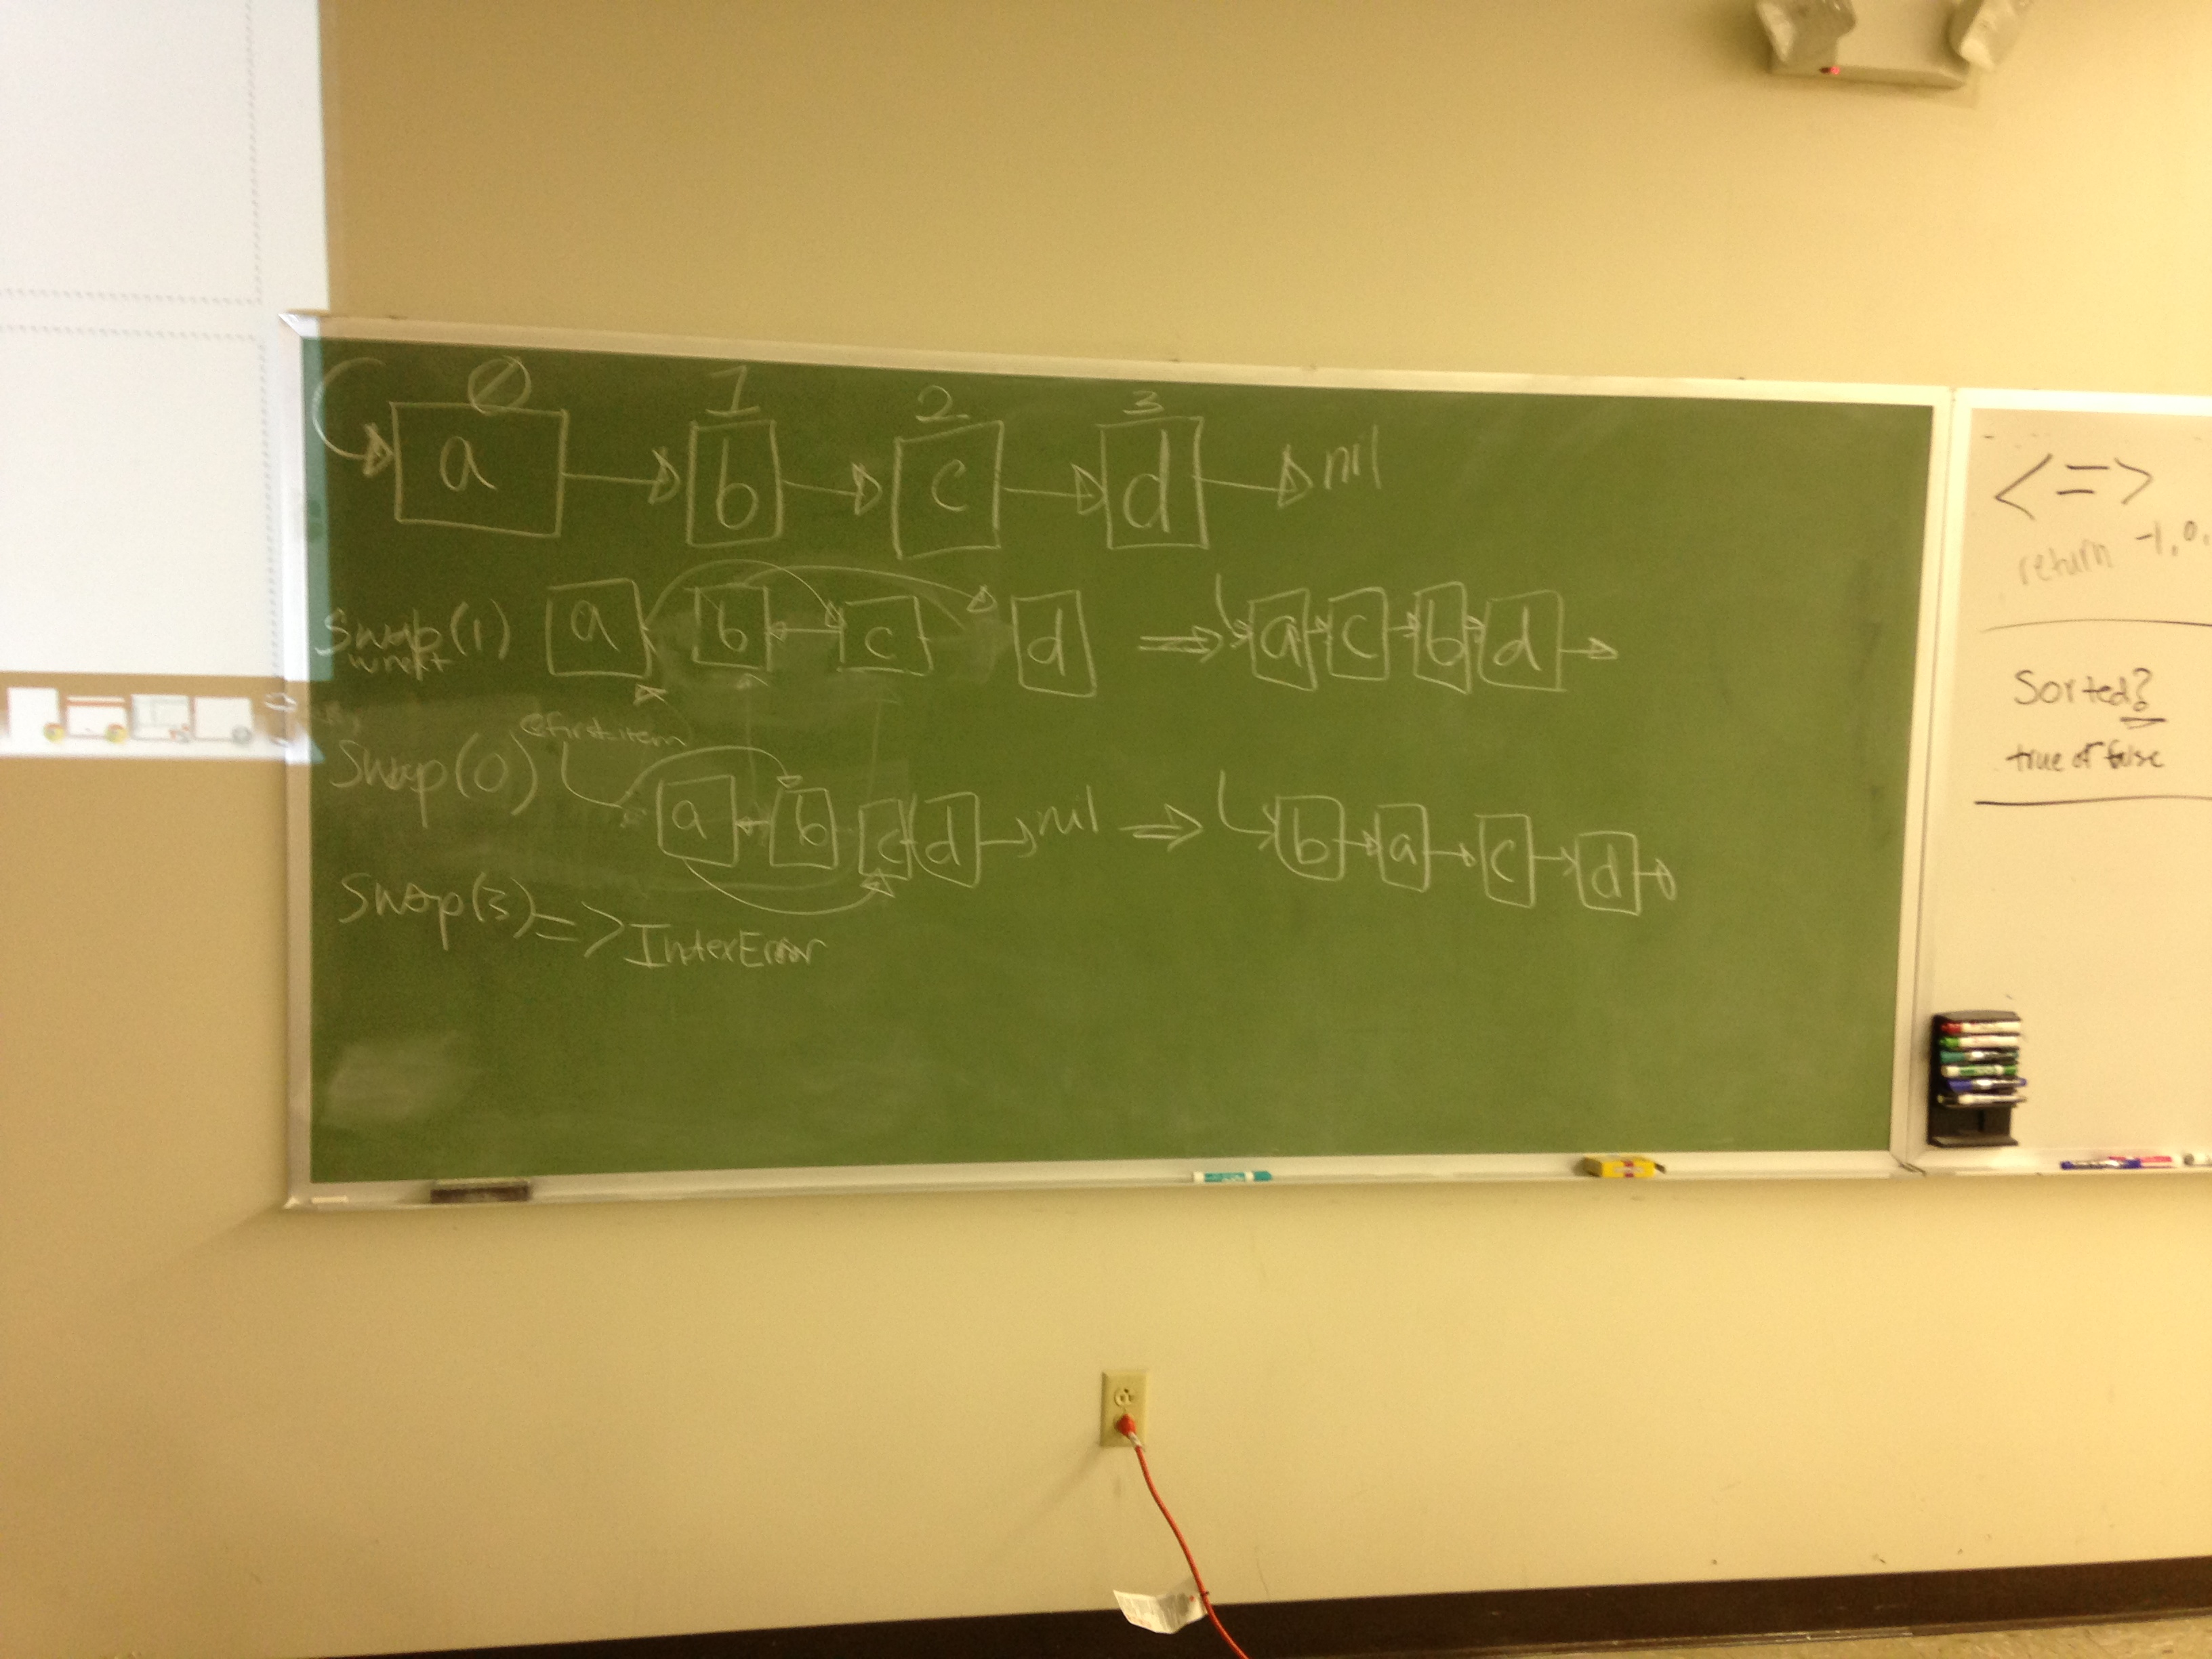 0 1 2 3
a b c d nil
Swap(1) a b c d => a c b d
w next
@first_item
Swap(0) a b c d nil => b a c d
Swap(3) => IndexError
<=>
return -1, 0,
Sorted?
true or false